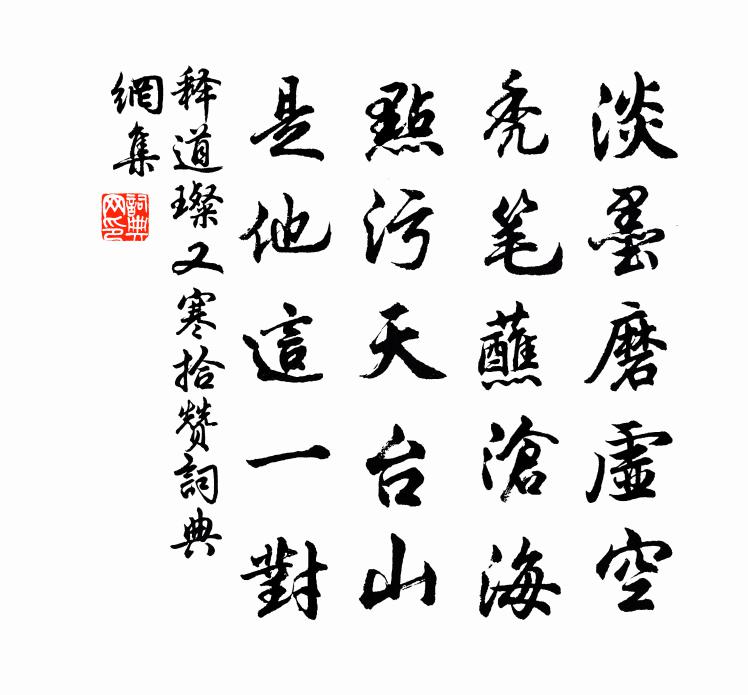 淡墨磨虛空
禿笔蘸滄海
點污天台山
是他這一對
释道璨又寒拾赞詞典
網集
詞典
网印